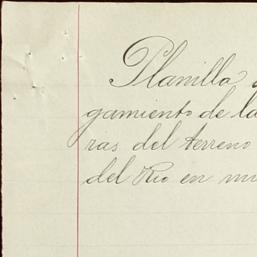 Planilla
gamiento de la
ras del terreno
del Rio en